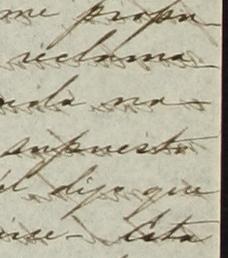 me propo-
reclama-
ada no
supuesto
él dijo que
Esta